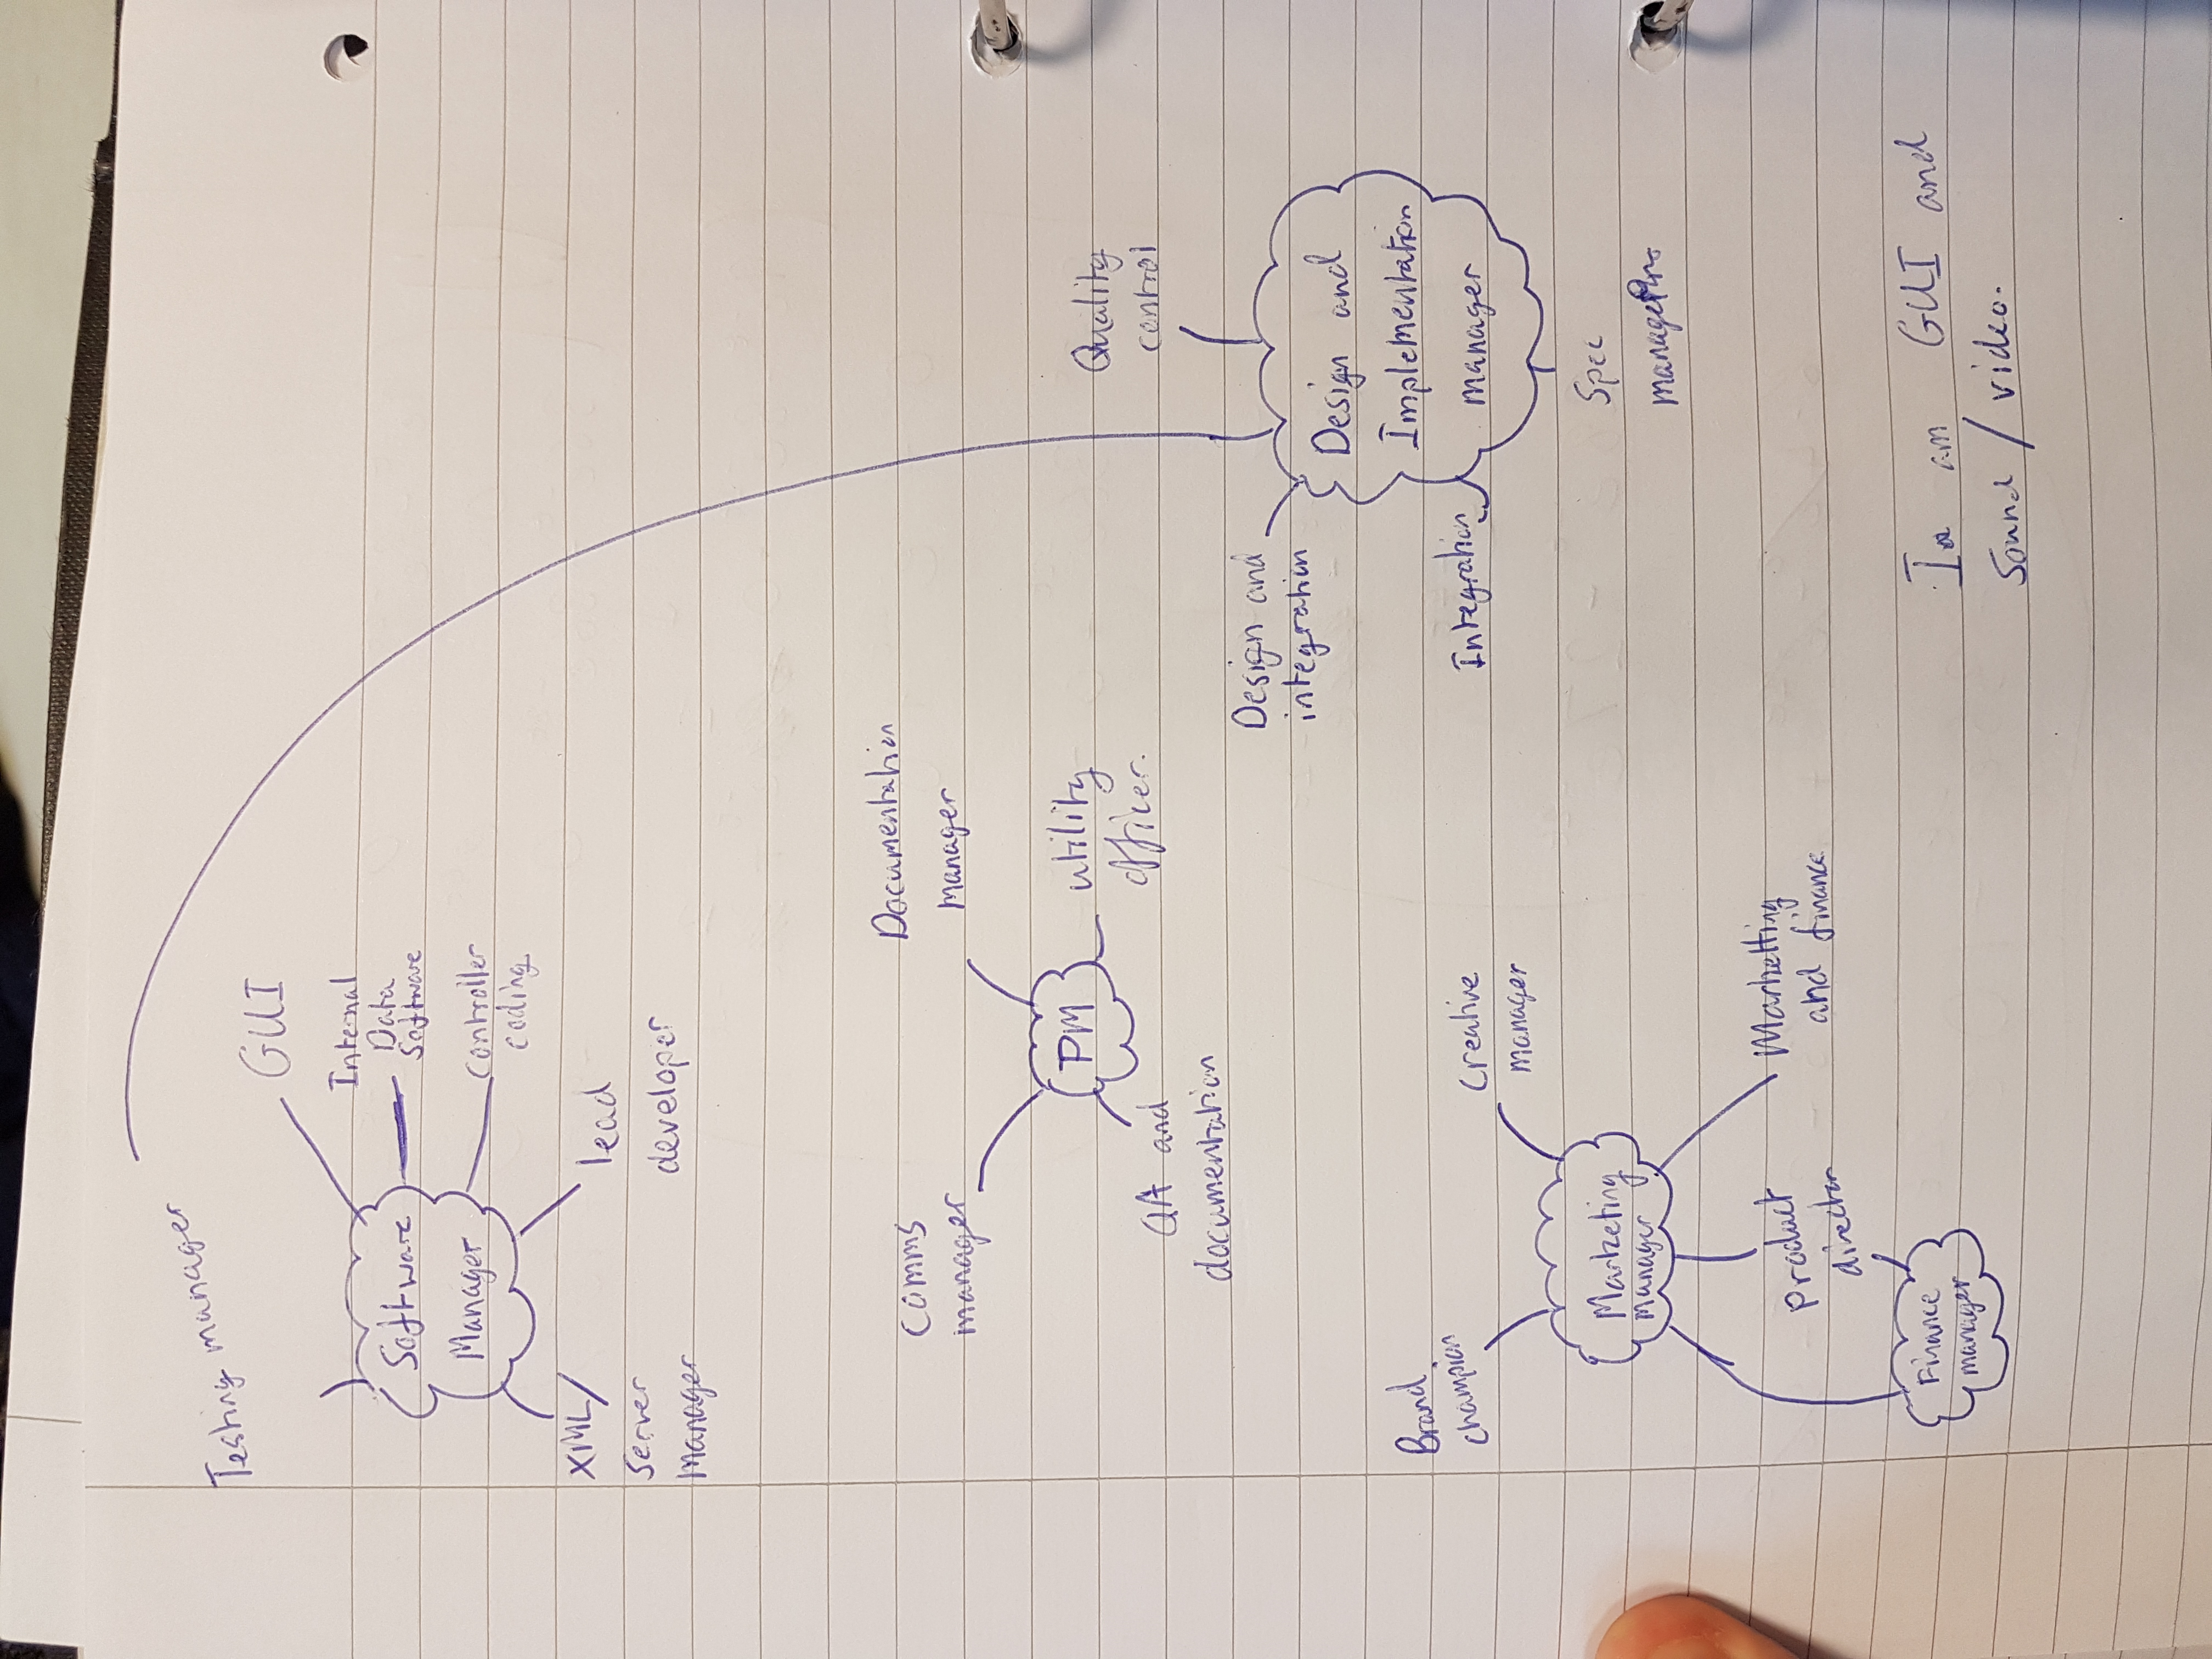 Testing manager
GUI
Internal
Data
Software
Software
Manager
Controller
coding
XML/
Server
Manager
lead
developer
Comms
manager
Documentation
manager
PM
utility
officer.
QA and
documentation
Quality
control
Design and
integration
Design and
Implementation
manager
Integration
Spec
Brand
champion
Creative
manager
Marketing
manager
Product
director
Marketting
and finance
Finance
manager
I am GUI and
Sound / video.